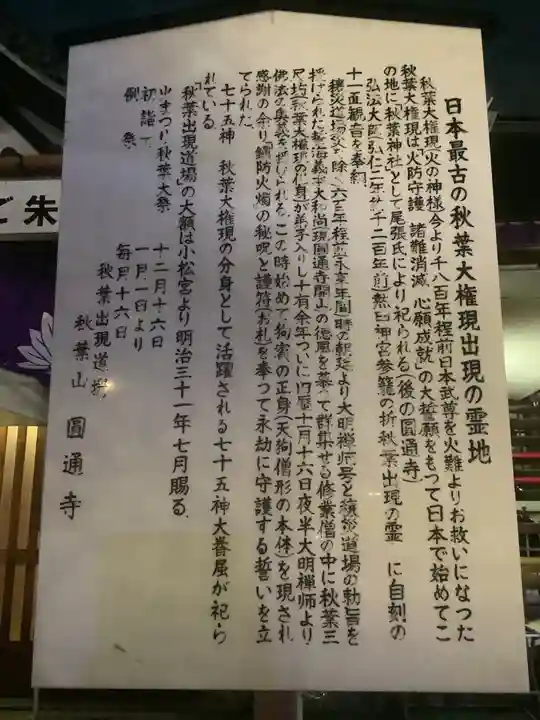 日本最古の秋葉大権現出現の霊地
秋葉大権現(火の神様)今より千八百年程前日本武尊を火難よりお救いになった
秋葉大権現は「火防守護 諸難消滅 心願成就」の大誓願をもつて日本で始めてこ
の地に「秋葉神社」として尾張氏により祀られる(後の圓通寺)
弘法大師弘仁二年 千二百年前 熱田神宮参籠の折秋葉出現の霊 に自刻の
十一面観音を奉納
穣災道場 六百年程前永享年間 時の朝廷より大明禅師号と穣災道場の勅旨を
授けられた 義大和尚現圓通寺開山の徳風を慕って群集せる修業僧の中に秋葉三
尺坊(秋葉大権現の化身)が弟子入りし十有余年ついに旧暦十一月十六日夜半大明禅師より
佛法の奥義を授けられる この時始めて狗賓の正身(天狗僧形の本体)を現され
感謝の余り「鎮防火燭の秘呪と護符」お札を奉つて永劫に守護する誓いを立
てられた
七十五神 秋葉大権現の分身として活躍される七十五神大眷属が祀ら
れている
「秋葉出現道場」の大額は小松宮より明治三十一年七月賜る
火まつり秋葉大祭 十二月十六日
初詣 一月一日より
例祭 毎月十六日
秋葉出現道場
秋葉山 圓通寺
ご朱